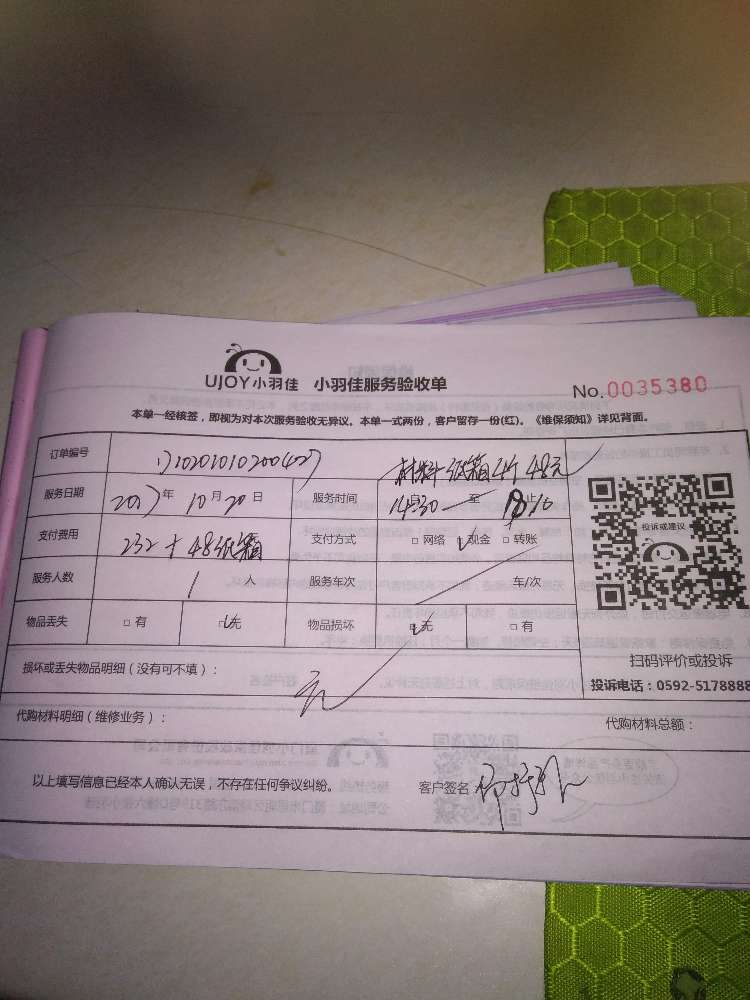 UJOY小羽佳 小羽佳服务验收单
No.0035380
本单一经核签，即视为对本次服务验收无异议。本单一式两份，客户留存一份(红)。《维保须知》详见背面。
订单编号 材料 纸箱4个 48元
服务日期 年 10月20日 服务时间 14:30 至
支付费用 232+48纸箱 支付方式 □网络 □现金 □转账
服务人数 1 人 服务车次 车/次
物品丢失 □有 □无 物品损坏 □无 □有
投诉或建议
扫码评价或投诉
投诉电话：0592-5178888
损坏或丢失物品明细（没有可不填）： 无
代购材料明细（维修业务）： 代购材料总额：
以上填写信息已经本人确认无误，不存在任何争议纠纷。 客户签名：